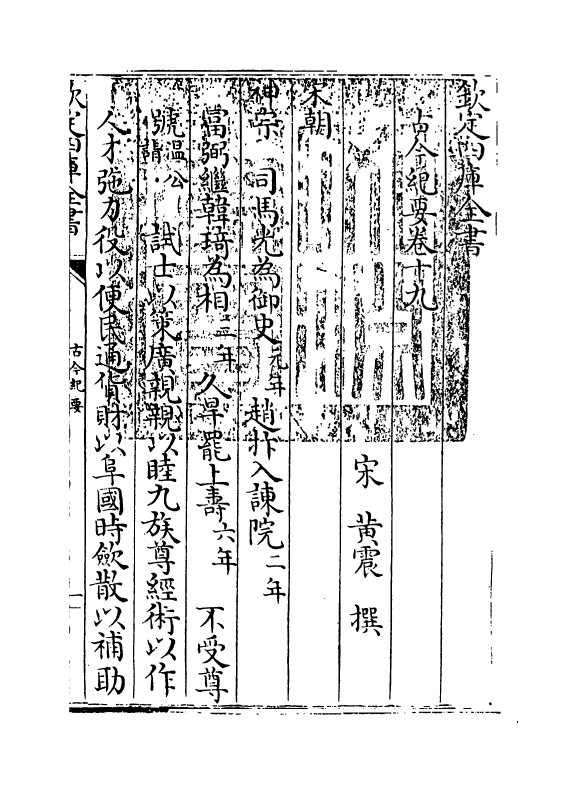 欽定四庫全書
古今紀要卷十九
宋 黃震 撰
宋朝
神宗 司馬光為御史元年 趙抃入諫院二年
富弼繼韓琦為相二年 久旱罷上壽六年 不受尊
號溫公請 試士以策廣親親以睦九族尊經術以作
人才弛力役以便民通貨財以阜國時斂散以補助
欽定四庫全書
古今紀要
一